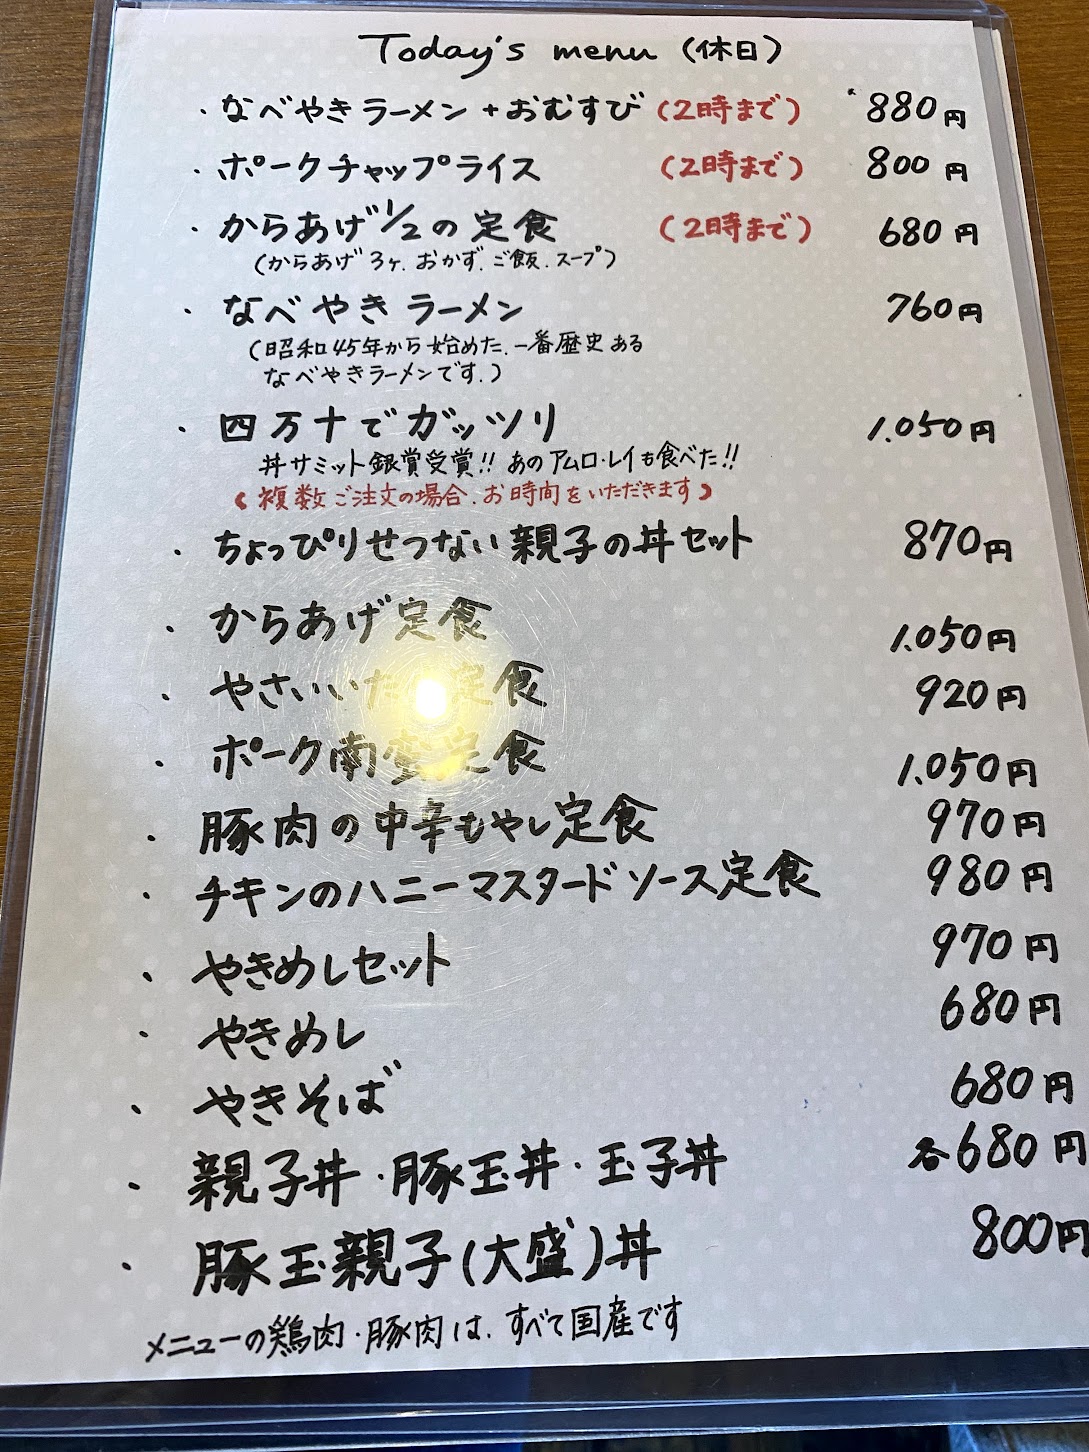 Today's menu (休日)
・なべやきラーメン+おむすび (2時まで) 880円
・ポークチャップライス (2時まで) 800円
・からあげ1/2の定食 (2時まで) 680円
(からあげ3ヶ.おかず.ご飯.スープ)
・なべやきラーメン 760円
(昭和45年から始めた.一番歴史ある
なべやきラーメンです.)
・四万十でガッツリ 1.050円
丼サミット銀賞受賞!! あのアムロ・レイも食べた!!
(複数ご注文の場合.お時間をいただきます)
・ちょっぴりせつない親子の丼セット 870円
・からあげ定食 1.050円
・やさいいため定食 920円
・ポーク南蛮定食 1.050円
・豚肉の中辛もやし定食 970円
・チキンのハニーマスタードソース定食 980円
・やきめしセット 970円
・やきめし 680円
・やきそば 680円
・親子丼・豚玉丼・玉子丼 各680円
・豚玉親子(大盛)丼 800円
メニューの鶏肉・豚肉は.すべて国産です